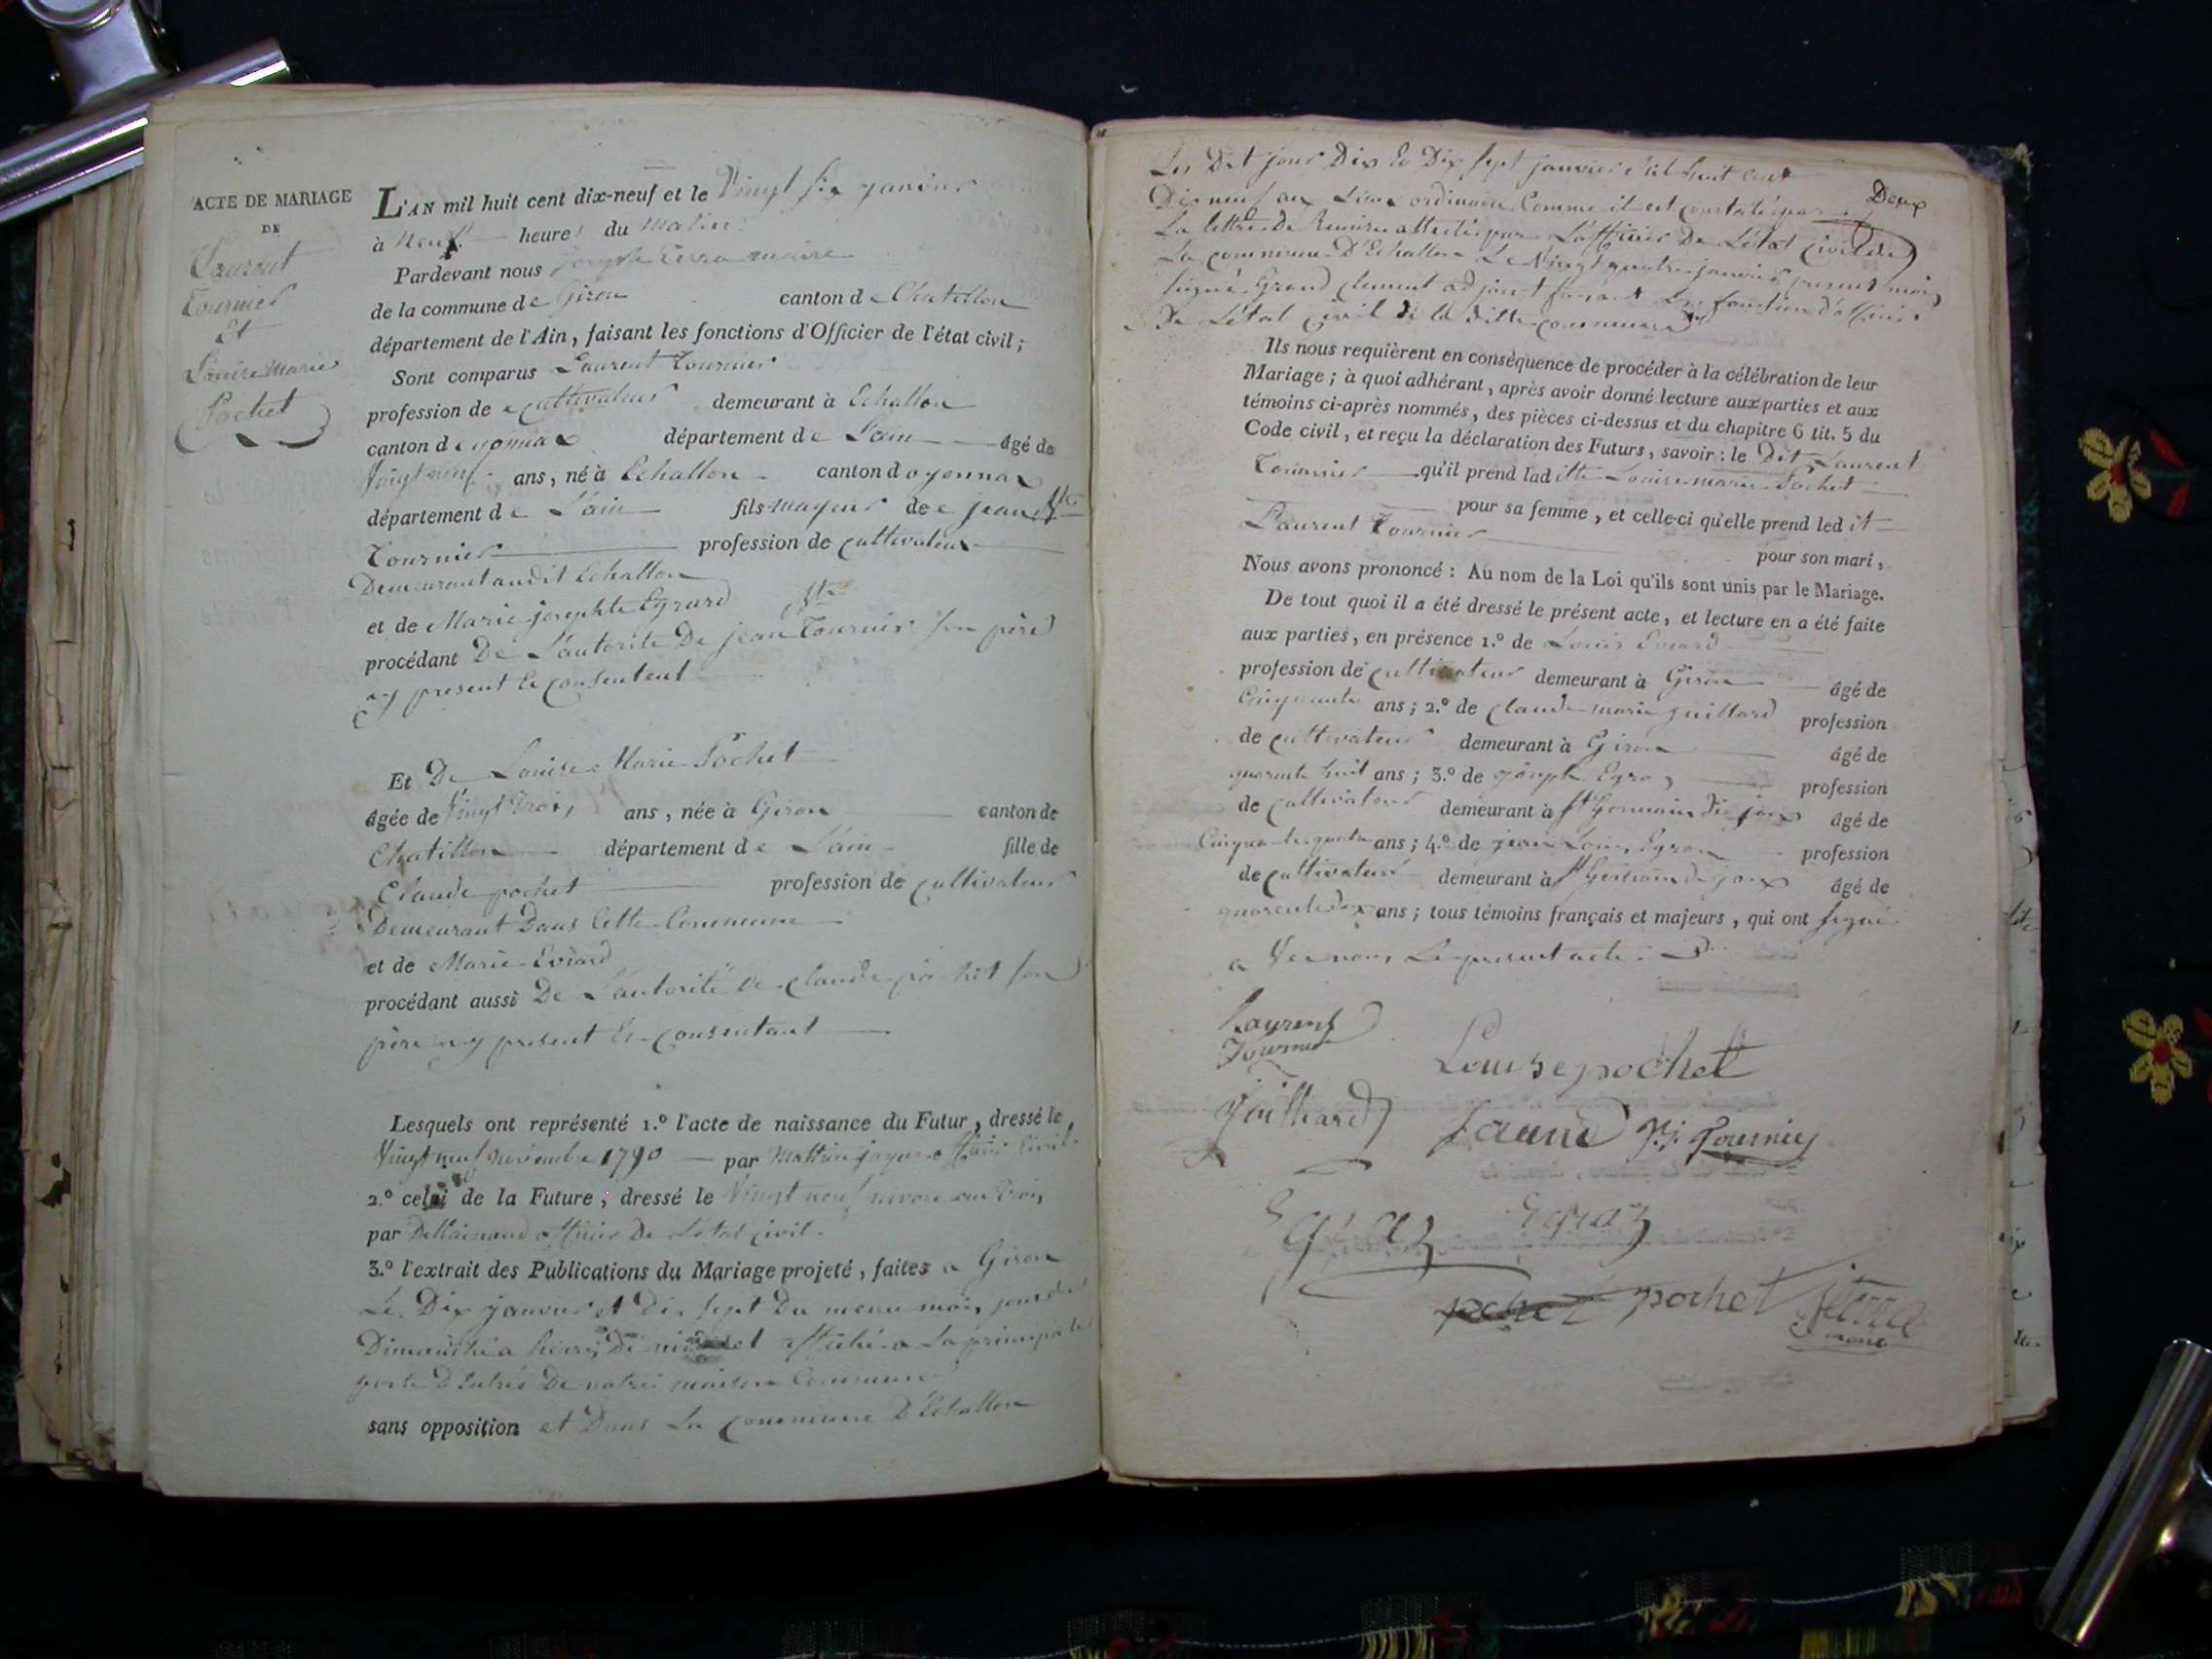 ACTE DE MARIAGE
DE
Laurent
Tournier
Et
Louise Marie
Pochet
L'AN mil huit cent dix-neuf et le Vingt six janvier
à neuf heures du matin
Pardevant nous joseph Terra maire
de la commune de Giron canton de Chatillon
département de l'Ain, faisant les fonctions d'Officier de l'état civil;
Sont comparus Laurent Tournier
profession de cultivateur demeurant à Echallon
canton d'oyonnax département de L'ain âgé de
Vingt neuf ans, né à Echallon canton d oyonnax
département de L'ain fils mayeur de jean Bte
Tournier profession de cultivateur
Demeurant audit Echallon
et de Marie josephte Egrard
procédant De L'autorité De jean Bte Tournier son père
cy present et consentent
Et De Louise Marie Pochet
âgée de Vingt Trois ans, née à Giron canton de
Chatillon département de L'ain fille de
Claude pochet profession de cultivateur
Demeurant Dans Cette Commune
et de Marie Evrard
procédant aussi De L'autorité de claude pochet son
père cy present et consentant
Lesquels ont représenté 1.º l'acte de naissance du Futur, dressé le
Vingt neuf novembre 1790 par officier Civil
2.º celui de la Future, dressé le Vingt neuf nivose an Trois
par officier De L'état civil.
3.º l'extrait des Publications du Mariage projeté, faites a Giron
Le Dix janvier et Dix sept Du meme mois jour de
Dimanche a heure De midi et affiché a La principale
porte D'Entrée De notre maison Commune
sans opposition et Dans La commune D'Echallon
Deux
Les Dit jour Dix et Dix sept janvier Mil huit cent
Dix neuf au Lieux ordinaire Comme il est constaté par
La lettre De Remise attestée par L'officier De L'état Civil de
La commune D'Echallon Le Vingt quatre janvier present mois
signé Grand clement adjoint faisant Les fonction d'officier
De L'état civil de la ditte commune
Ils nous requièrent en conséquence de procéder à la célébration de leur
Mariage; à quoi adhérant, après avoir donné lecture aux parties et aux
témoins ci-après nommés, des pièces ci-dessus et du chapitre 6 tit. 5 du
Code civil, et reçu la déclaration des Futurs, savoir: le Dit Laurent
Tournier qu'il prend laditte Louise marie Pochet
pour sa femme, et celle-ci qu'elle prend ledit
Laurent Tournier
pour son mari,
Nous avons prononcé: Au nom de la Loi qu'ils sont unis par le Mariage.
De tout quoi il a été dressé le présent acte, et lecture en a été faite
aux parties, en présence 1.º de Louis Evrard
profession de cultivateur demeurant à Giron âgé de
Cinquante ans; 2.º de claude marie juilliard profession
de cultivateur demeurant à Giron âgé de
quarante huit ans; 3.º de joseph Egraz profession
de cultivateur demeurant à St Germain de joux âgé de
Cinquante quatre ans; 4.º de jean Louis Egraz profession
de cultivateur demeurant à St Germain de joux âgé de
quarente deux ans; tous témoins français et majeurs, qui ont signé
avec nous Le present acte
Laurent
Tournier
Louise pochet
juilliard
Tournier
Egraz Egraz
pochet pochet jTerra
maire